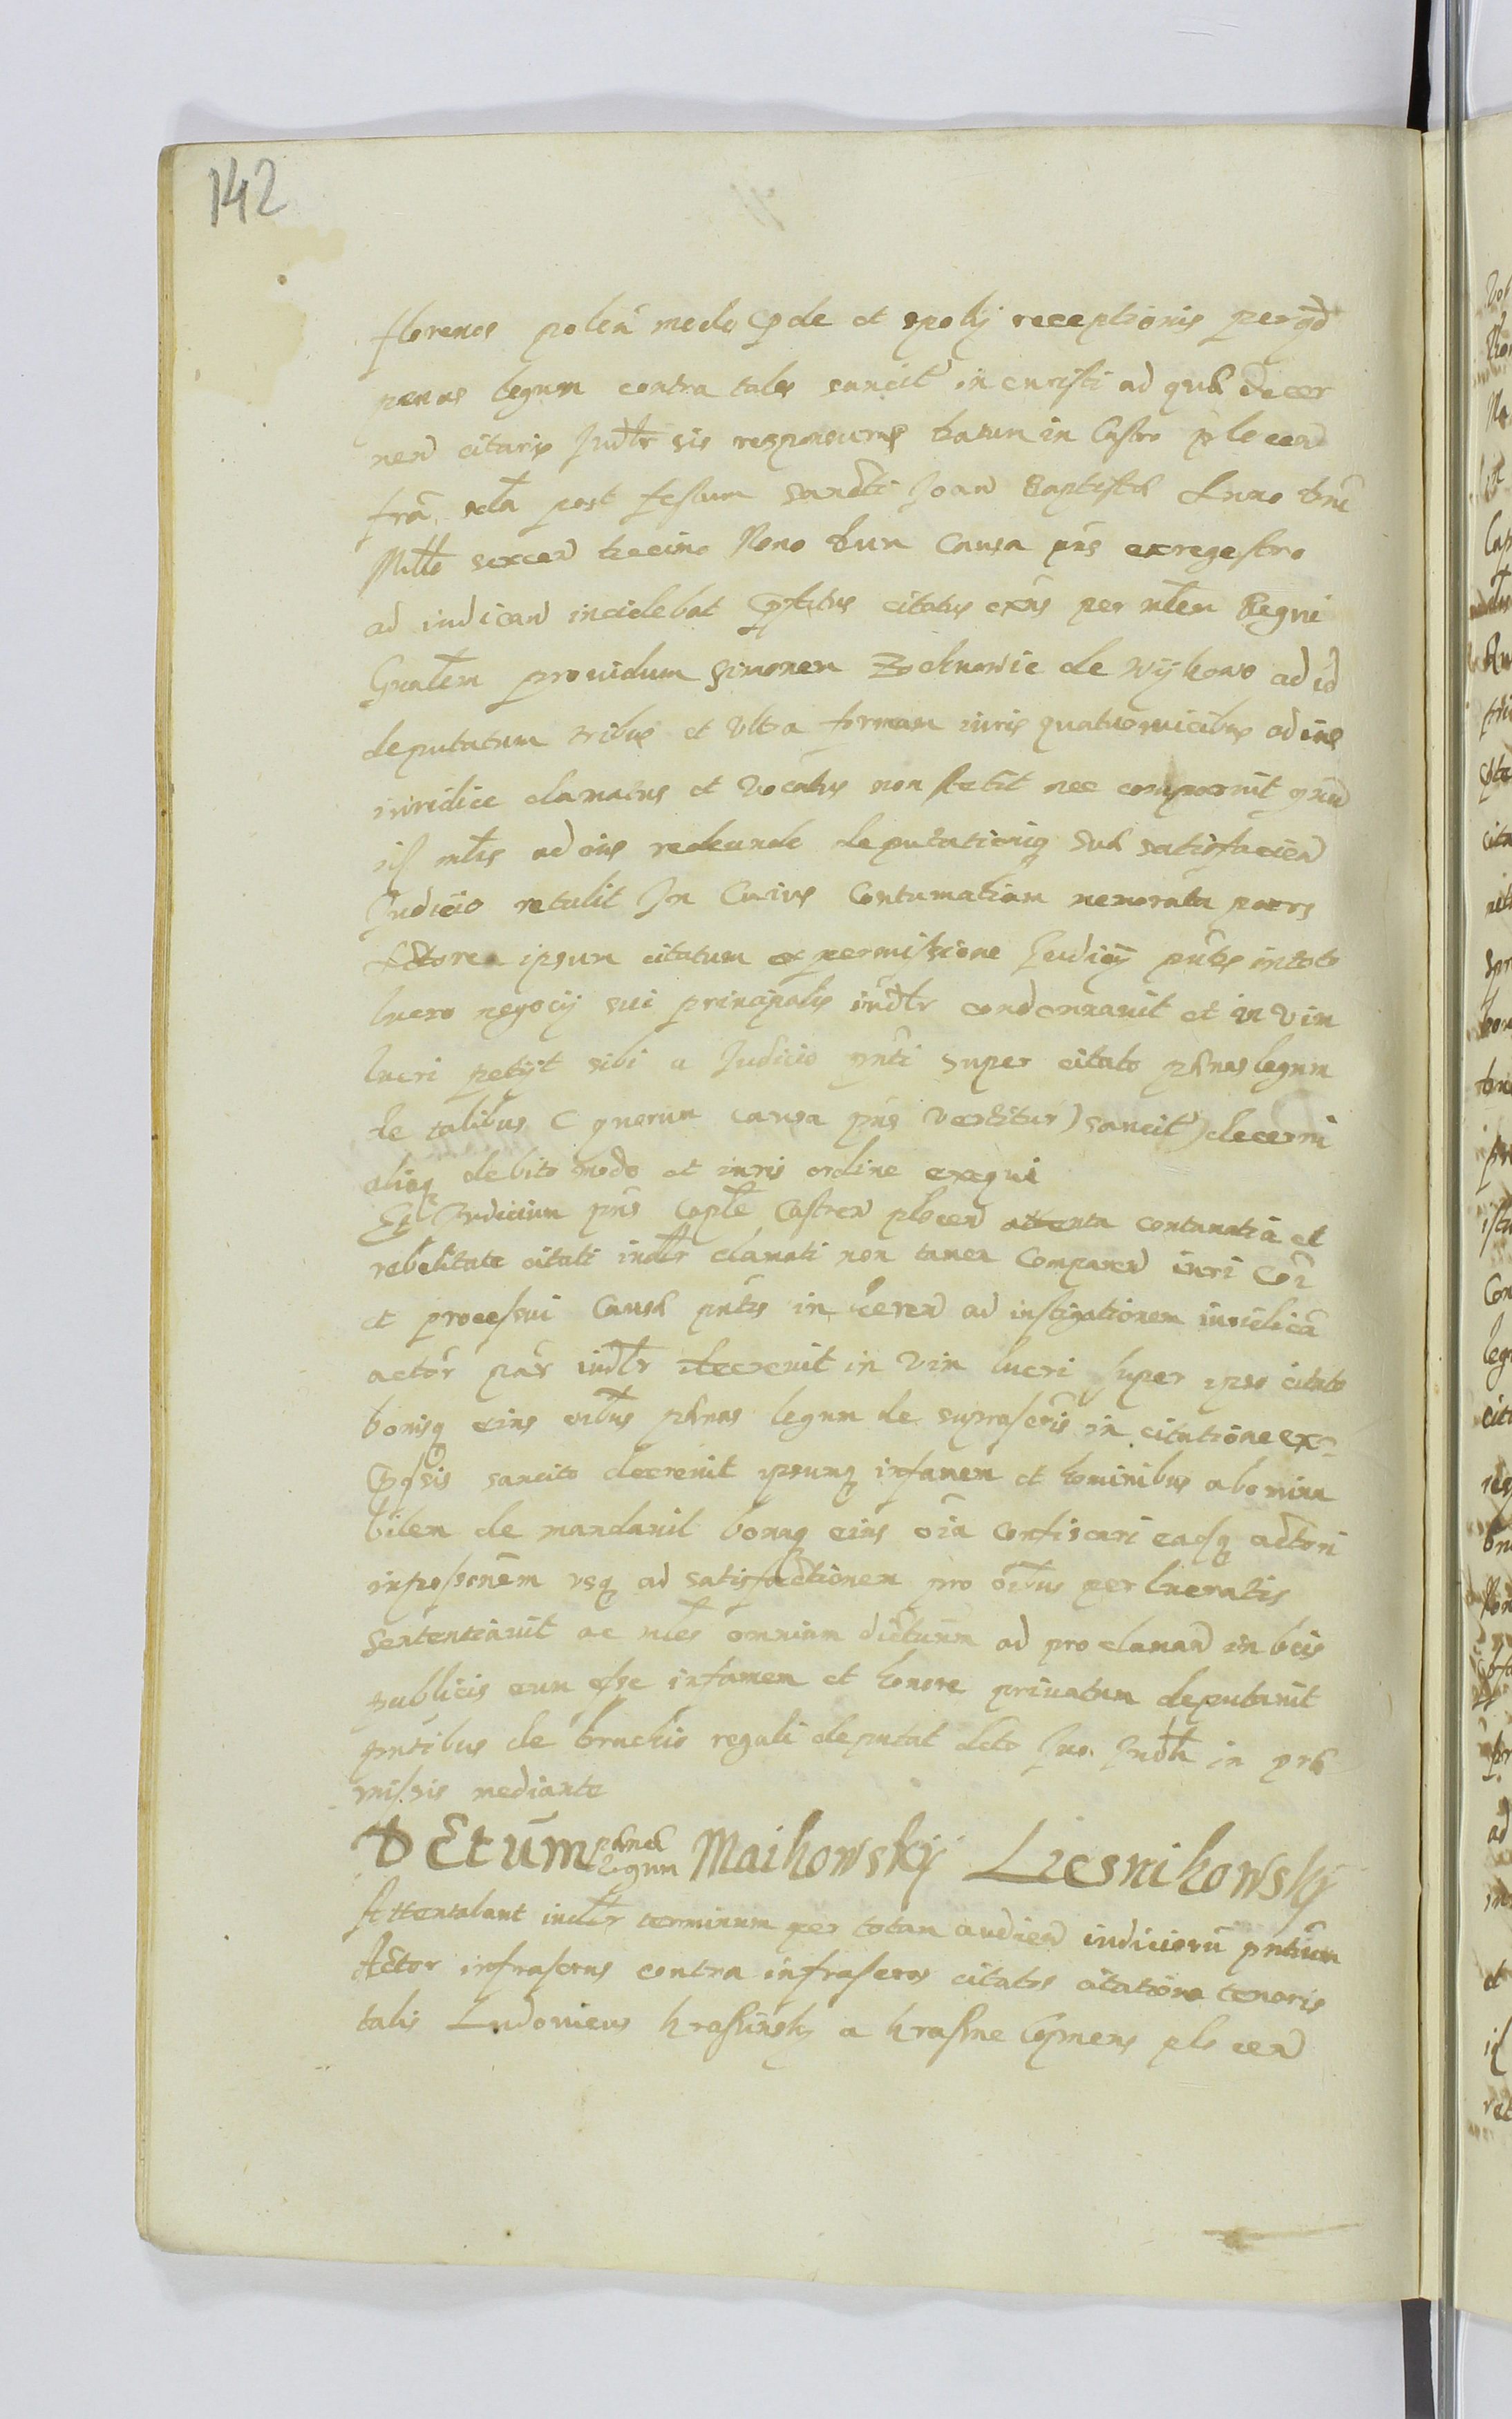 142
florenos polēn modo cæde et spolij receptionis per qd
penas legum contra tales sancit incuristi ad quas decer
nen citaris Judlr sis responsurus Datum in Castro plocen
fria scda post festum Sancti Joan Baptistæ Anno Dni
Millo sexcen decimo Nono dum Causa pns exregestro
ad iudican incidebat citatus exns per mlem Regni
Gnalem prouidum Simonem de ad id
deputatum tribus et vltra formam iuris quatuoruicibus ad ius
iuridice clamatus et vocatus non stetit nec comparuit
is mlis ad ois redeundo deputationiq suæ satisfacien
Judicio retulit In Cuius Contumatiam memorata pars
Actorea ipsum citatum ex permissione Judicij pntis intoto
lucro negocij sui principalis iudlr condemnauit et in vim
lucri petijt sibi a Judicio pnti super citato pænas legum
de talibus (quorum causa pns vertitur) sancit) decerni
aliaq debito modo et iuris ordine exequi
Et Judicium pns Caple Castren plocen attenta contumatia et
rebelitate citati iudlr clamati non tamen Comparen iuri Coi
et processui Causæ pntis in heren ad instigationem iuridicā
actor par iudlr decreuit in vim lucri super ipso citato
bonisq eius oibus pænas legum de suprascris in citatione ex
sis sancito decreuit ipsumq infamem et hominibus abomina
bilem de mandauit bonaq eius oia confiscari eadq actori
inpossonem vsq ad satisfactionem pro oibus per lucratis
sententiauit ac mles omnium dictuum ad pro claman in locis
publicis eum esse infamem et honore priuatum deputauit
pntibus de brachio regali deputat dcto Juo. Judlr in præ
missis mediante
Dctum pænæ legum Maikowskij Liesnikowskij
Attentabant iudlr terminum per totam audien iudiciorū pntium
Actor infrascrus contra infrascros citatos citatione tenoris
talis Ludouicus Krasinsky a Krasne plocen